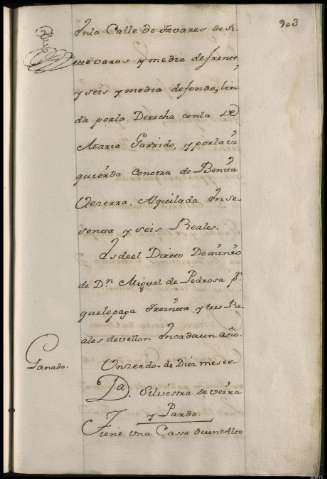 303
En la Calle de Tavares de
nuevaras y media de frente
y seis y media de fondo, lin
da por la Derecha con la de
Maria Garrido, y por la iz
quierda con otra de Benita
Vezerra, Alquilada En se
senta y seis Reales.
Es de el Direto Dominio
de Dn. Miguel de Pedrosa pr.
que le paga treinta y tres Re
ales de vellon En cada un año.
Ganado.
Un zerdo de Diez meses
Da. Silvestra
y Pardo
Tiene una Casa de un Alto